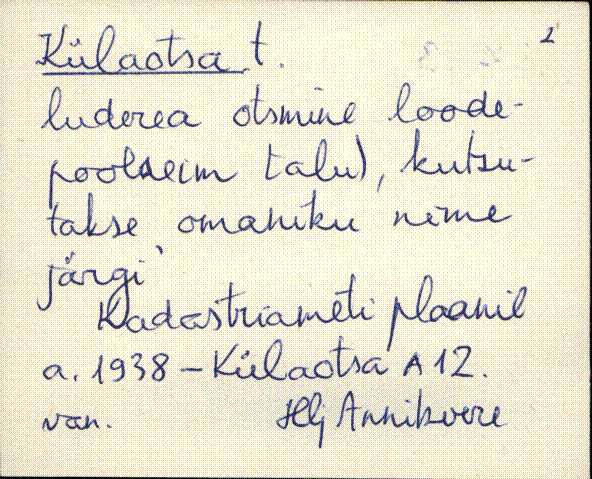 2
Külaotsa t.
luderea otsmine loode-
poolseim talu), kutsu-
takse omaniku nime
järgi'
Kadastriameti plaanil
a. 1938 – Külaotsa A 12.
van. Hlj Annikvere